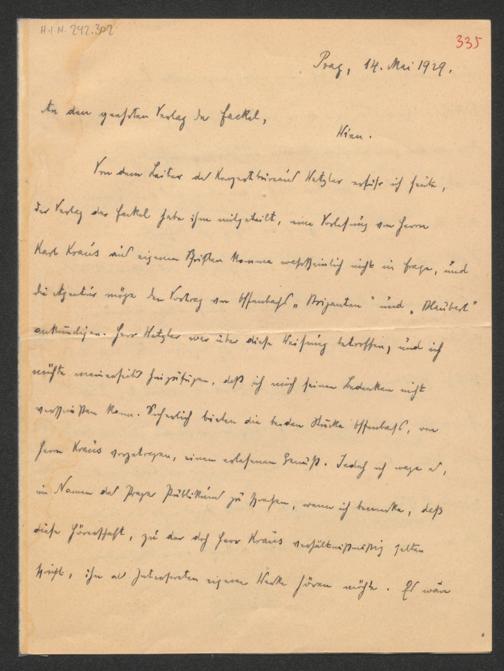 H.I.N. 242.302
335
Prag, 14. Mai 1929.
An den geehrten Verlag der Fackel,
Wien.
Von dem Leiter des Konzertbüreaus Hetzler erfuhr ich heute,
der Verlag der Fackel habe ihm mitgeteilt, eine Vorlesung von Herrn
Karl Kraus aus eigenen Schriften komme wahrscheinlich nicht in Frage, und
die Agentur möge den Vortrag von Offenbachs „Briganten" und „Blaubart"
ankündigen. Herr Hetzler war über diese Weisung betroffen, und ich
möchte meinerseits hinzufügen, daß ich mich seinen Bedenken nicht
verschließen kann. Sicherlich bieten die beiden Stücke Offenbachs, von
Herrn Kraus vorgetragen, einen erlesenen Genuß. Jedoch ich wage es,
im Namen des Prager Publikums zu sprechen, wenn ich bemerke, daß
diese Hörerschaft, zu der doch Herr Kraus verhältnismäßig selten
spricht, ihn als Interpreten eigener Werke hören möchte. Es wäre